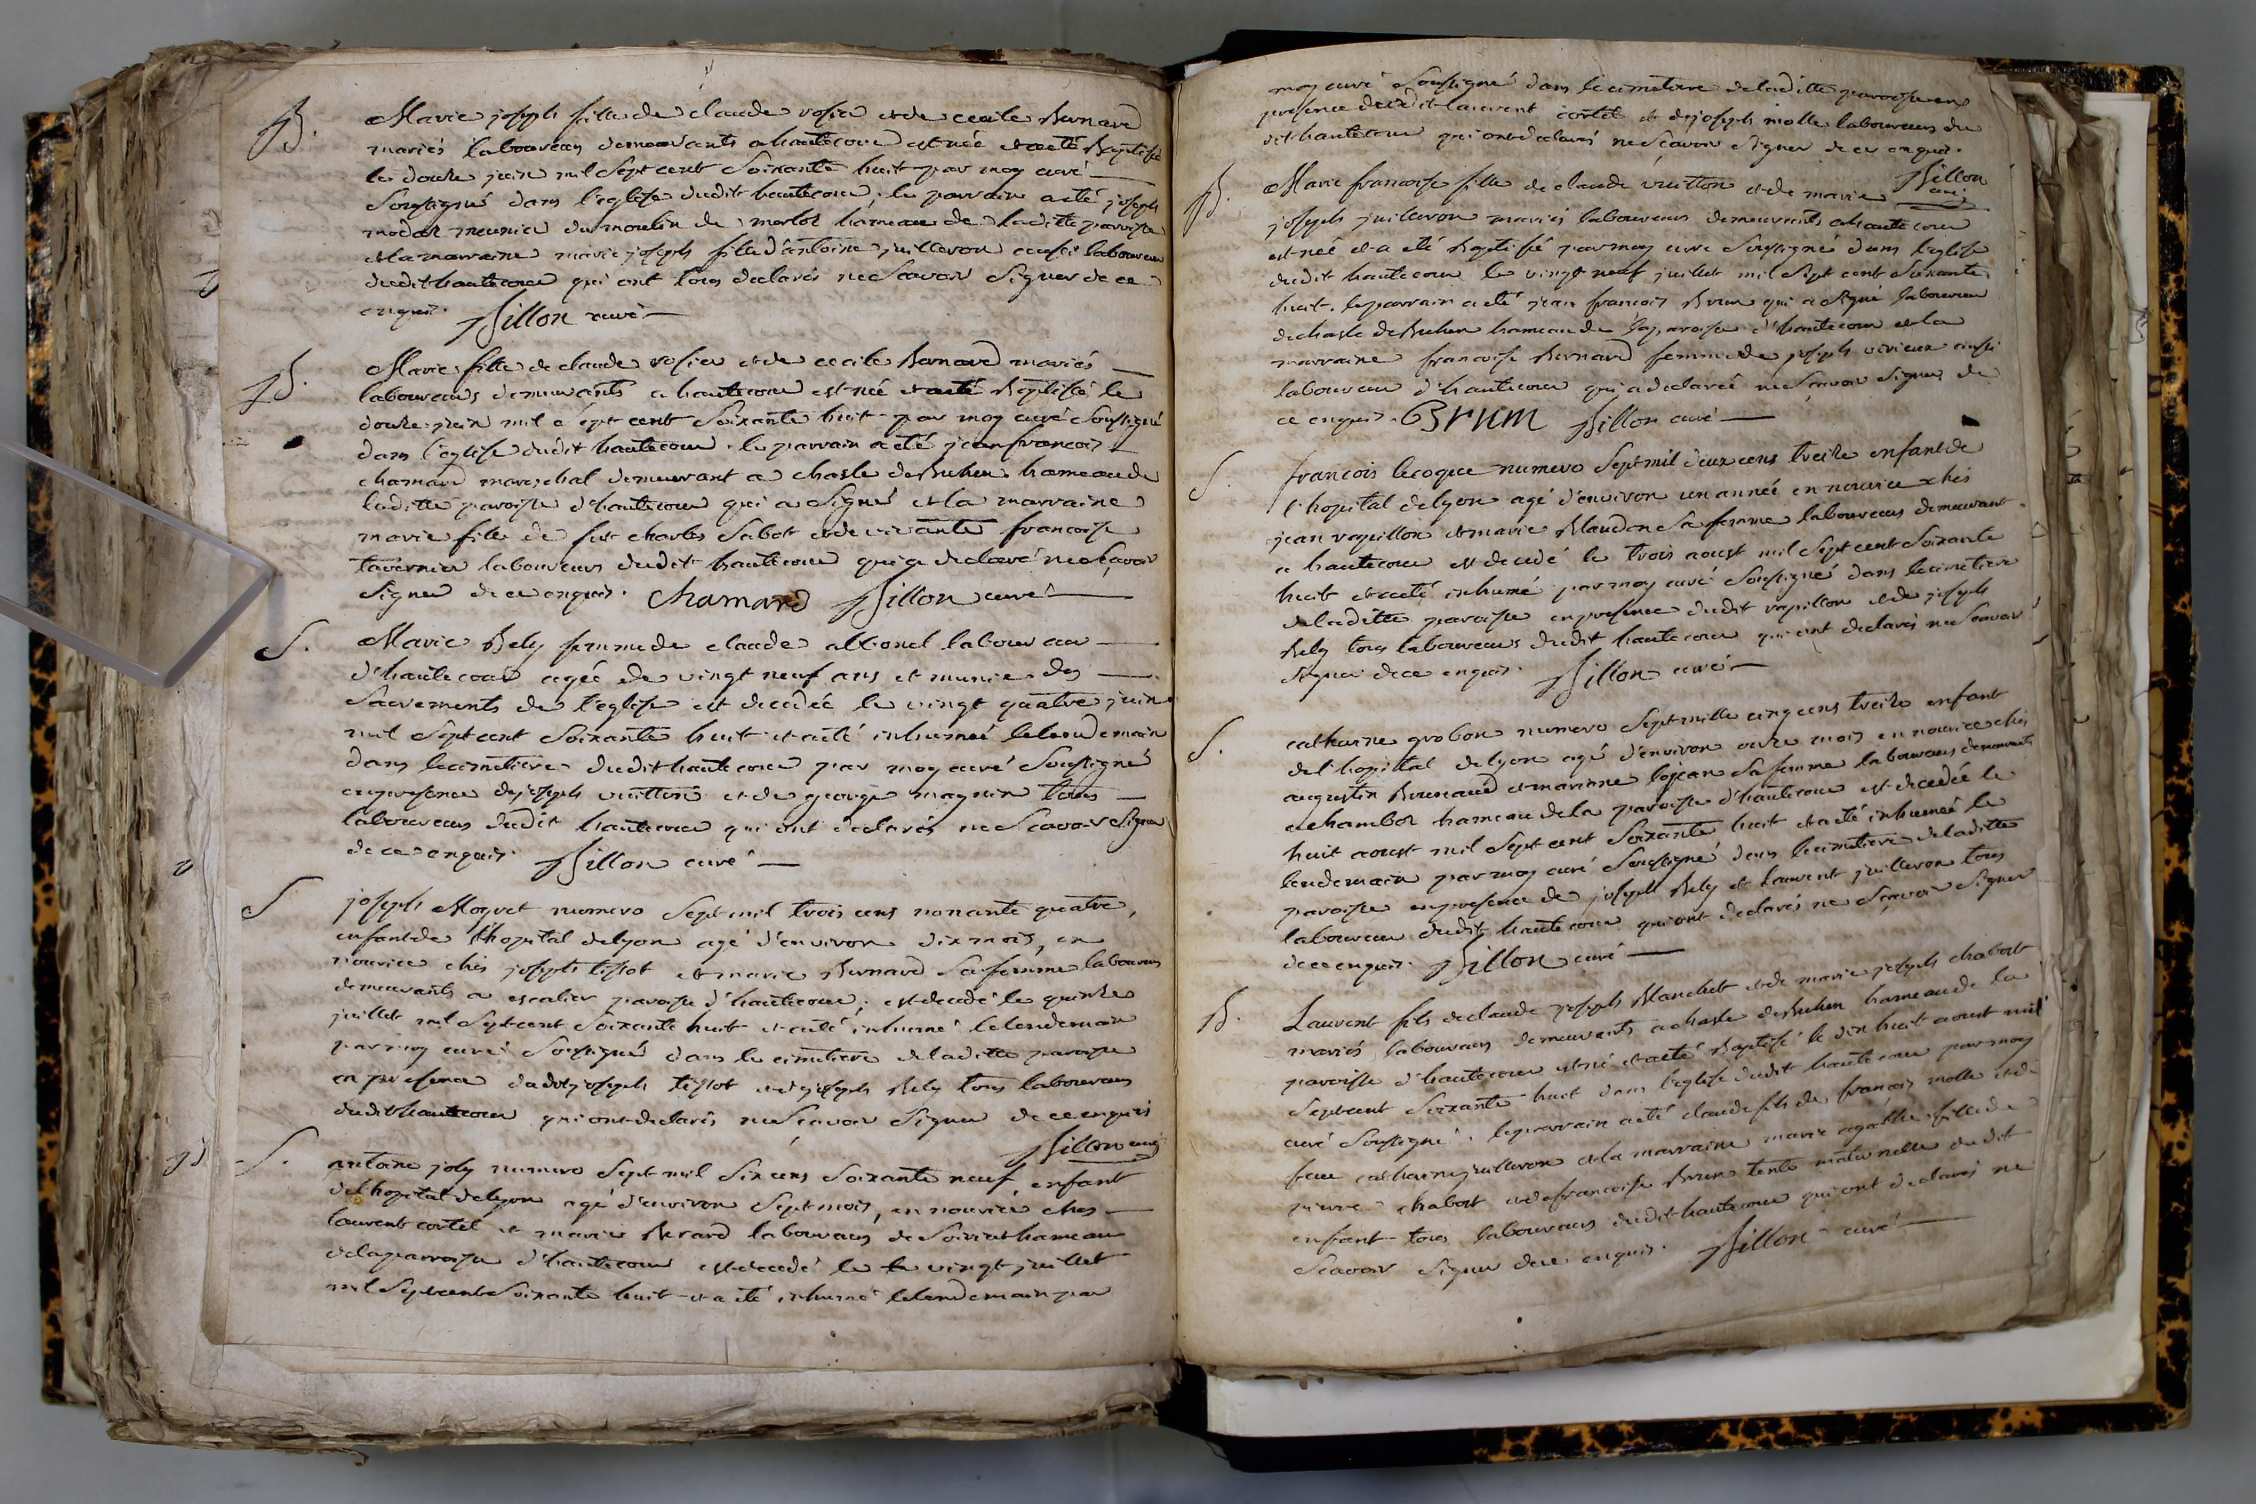 B.
Marie joseph fille de claude rosier et de cecile Bernard
mariés laboureurs demeurants a hautecour est née et a eté Baptisée
le douze juin mil Sept cent Soixante huit par moy curé
Soussigné dans l'eglise dudit hautecour, le parrain a eté joseph
meunier du moulin de hameau de laditte paroisse
et la marraine marie joseph fille d'antoine juilleron aussi laboureur
dudit hautecour qui ont tous declarés ne Scavoir Signer de ce
enquis. Billon curé
B.
Marie fille de claude rosier et de cecile Bernard mariés
laboureurs demeurants a hautecour est née et a eté Baptisée le
douze juin mil sept cent Soixante huit par moy curé Soussigné
dans l'eglise dudit hautecour. le parrain a eté jean francois
chamard mareschal demeurant a chasle de Buhen hameau de
laditte paroisse d'hautecour qui a Signé et la marraine
marie fille de feu charles Sabot et de vivante francoise
tavernier laboureurs dudit hautecour qui a declaré ne Scavoir
Signer de ce enquis. Chamard Billon curé
S.
Marie Bely femme de claude alband laboureur
d'hautecour agée de vingt neuf ans et munie des
Sacrements de l'eglise est decedée le vingt quatre juin
mil Sept cent Soixante huit et a eté inhumée le lendemain
dans le cimetiere dudit hautecour par moy curé Soussigné
en presence de joseph vuitton et de george magnin tous
laboureurs dudit hautecour qui ont declarés ne Scavoir Signer
de ce enquis. Billon curé
S
joseph Moquet numero Sept mil trois cens nonante quatre,
enfant de l'hopital de lyon agé d'environ dix mois, en
nourice chés joseph tissot et marie Bernard Sa femme laboureurs
demeurants a escalier paroisse d'hautecour, est decedé le quinze
juillet mil Sept cent Soixante huit et a eté inhumé le lendemain
par moy curé Soussigné dans le cimetiere de laditte paroisse
en presence dudit joseph tissot et de joseph Bely tous laboureurs
dudit hautecour qui ont declarés ne Scavoir Signer de ce enquis
Billon curé
S.
antoine joly numero Sept mil Six cens Soixante neuf, enfant
de l'hopital de lyon agé d'environ Sept mois, en nourice chés
laurent cortel et marie Berard laboureurs de Soiriat hameau
de la paroisse d'hautecour est decedé le vingt juillet
mil Sept cent Soixante huit et a eté inhumé le lendemain par
moy curé Soussigné dans le cimetiere de laditte paroisse en
presence dudit laurent cortel et de joseph molle laboureurs du
dit hautecour qui ont declarés ne Scavoir Signer de ce enquis.
Billon
curé
B.
Marie francoise fille de claude vuitton et de marie
joseph juilleron mariés laboureurs demeurants a hautecour
est née et a eté Baptisée par moy curé Soussigné dans l'eglise
dudit hautecour le vingt neuf juillet mil Sept cent Soixante
huit. le parrain a eté jean francois Brun qui a Signé laboureur
de chasle de Buhen hameau de la paroisse d'hautecour et la
marraine francoise Bernard femme de joseph vivieux aussi
laboureur d'hautecour qui a declarée ne Scavoir Signer de
ce enquis. Brun Billon curé
S.
francois lecoque numero Sept mil deux cens treize enfant de
l'hopital de lyon agé d'environ un année en nourice chés
jean rapillon et marie Blandon Sa femme laboureurs demeurant
a hautecour est decedé le trois aoust mil Sept cent Soixante
huit et a eté inhumé par moy curé Soussigné dans le cimetiere
de laditte paroisse en presence dudit rapillon et de joseph
Bely tous laboureurs dudit hautecour qui ont declarés ne Scavoir
Signer de ce enquis. Billon curé
S.
catherine grobon numero Sept mille cinq cens treize enfant
de l'hopital de lyon agé d'environ onze mois en nourice chés
augustin Brunaud et marianne lojean Sa femme laboureurs demeurants
a chambor hameau de la paroisse d'hautecour est decedée le
huit aoust mil Sept cent Soixante huit et a eté inhumée le
lendemain par moy curé Soussigné dans le cimetiere de laditte
paroisse en presence de joseph Bely et laurent juilleron tous
laboureurs dudit hautecour qui ont declarés ne Scavoir Signer
de ce enquis. Billon curé
B.
Laurent fils de claude joseph Blanchet et de marie joseph chabost
mariés laboureurs demeurants a chasle de Buhen hameau de la
paroisse d'hautecour est né et a eté Baptisé le dix huit aoust mil
Sept cent Soixante huit dans l'eglise dudit hautecour par moy
curé Soussigné. le parrain a eté claude fils de francois molle et de
feue catherine juilleron et la marraine marie agathe fille de
pierre chabost et de francoise Brun tante maternelle dudit
enfant tous laboureurs dudit hautecour qui ont declarés ne
Scavoir Signer de ce enquis. Billon curé